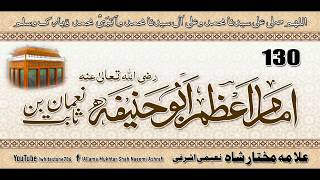 اللهم صلی علی سیدنا محمد وعلی آل سیدنا محمد
130
رضی اللہ تعالیٰ عنہ
امام اعظم ابو حنیفہ
نعمان بن ثابت
علامہ مختار شاہ نعیمی اشرفی
YouTube
/Allama Mukhtar Shah Naeemi Ashrafi